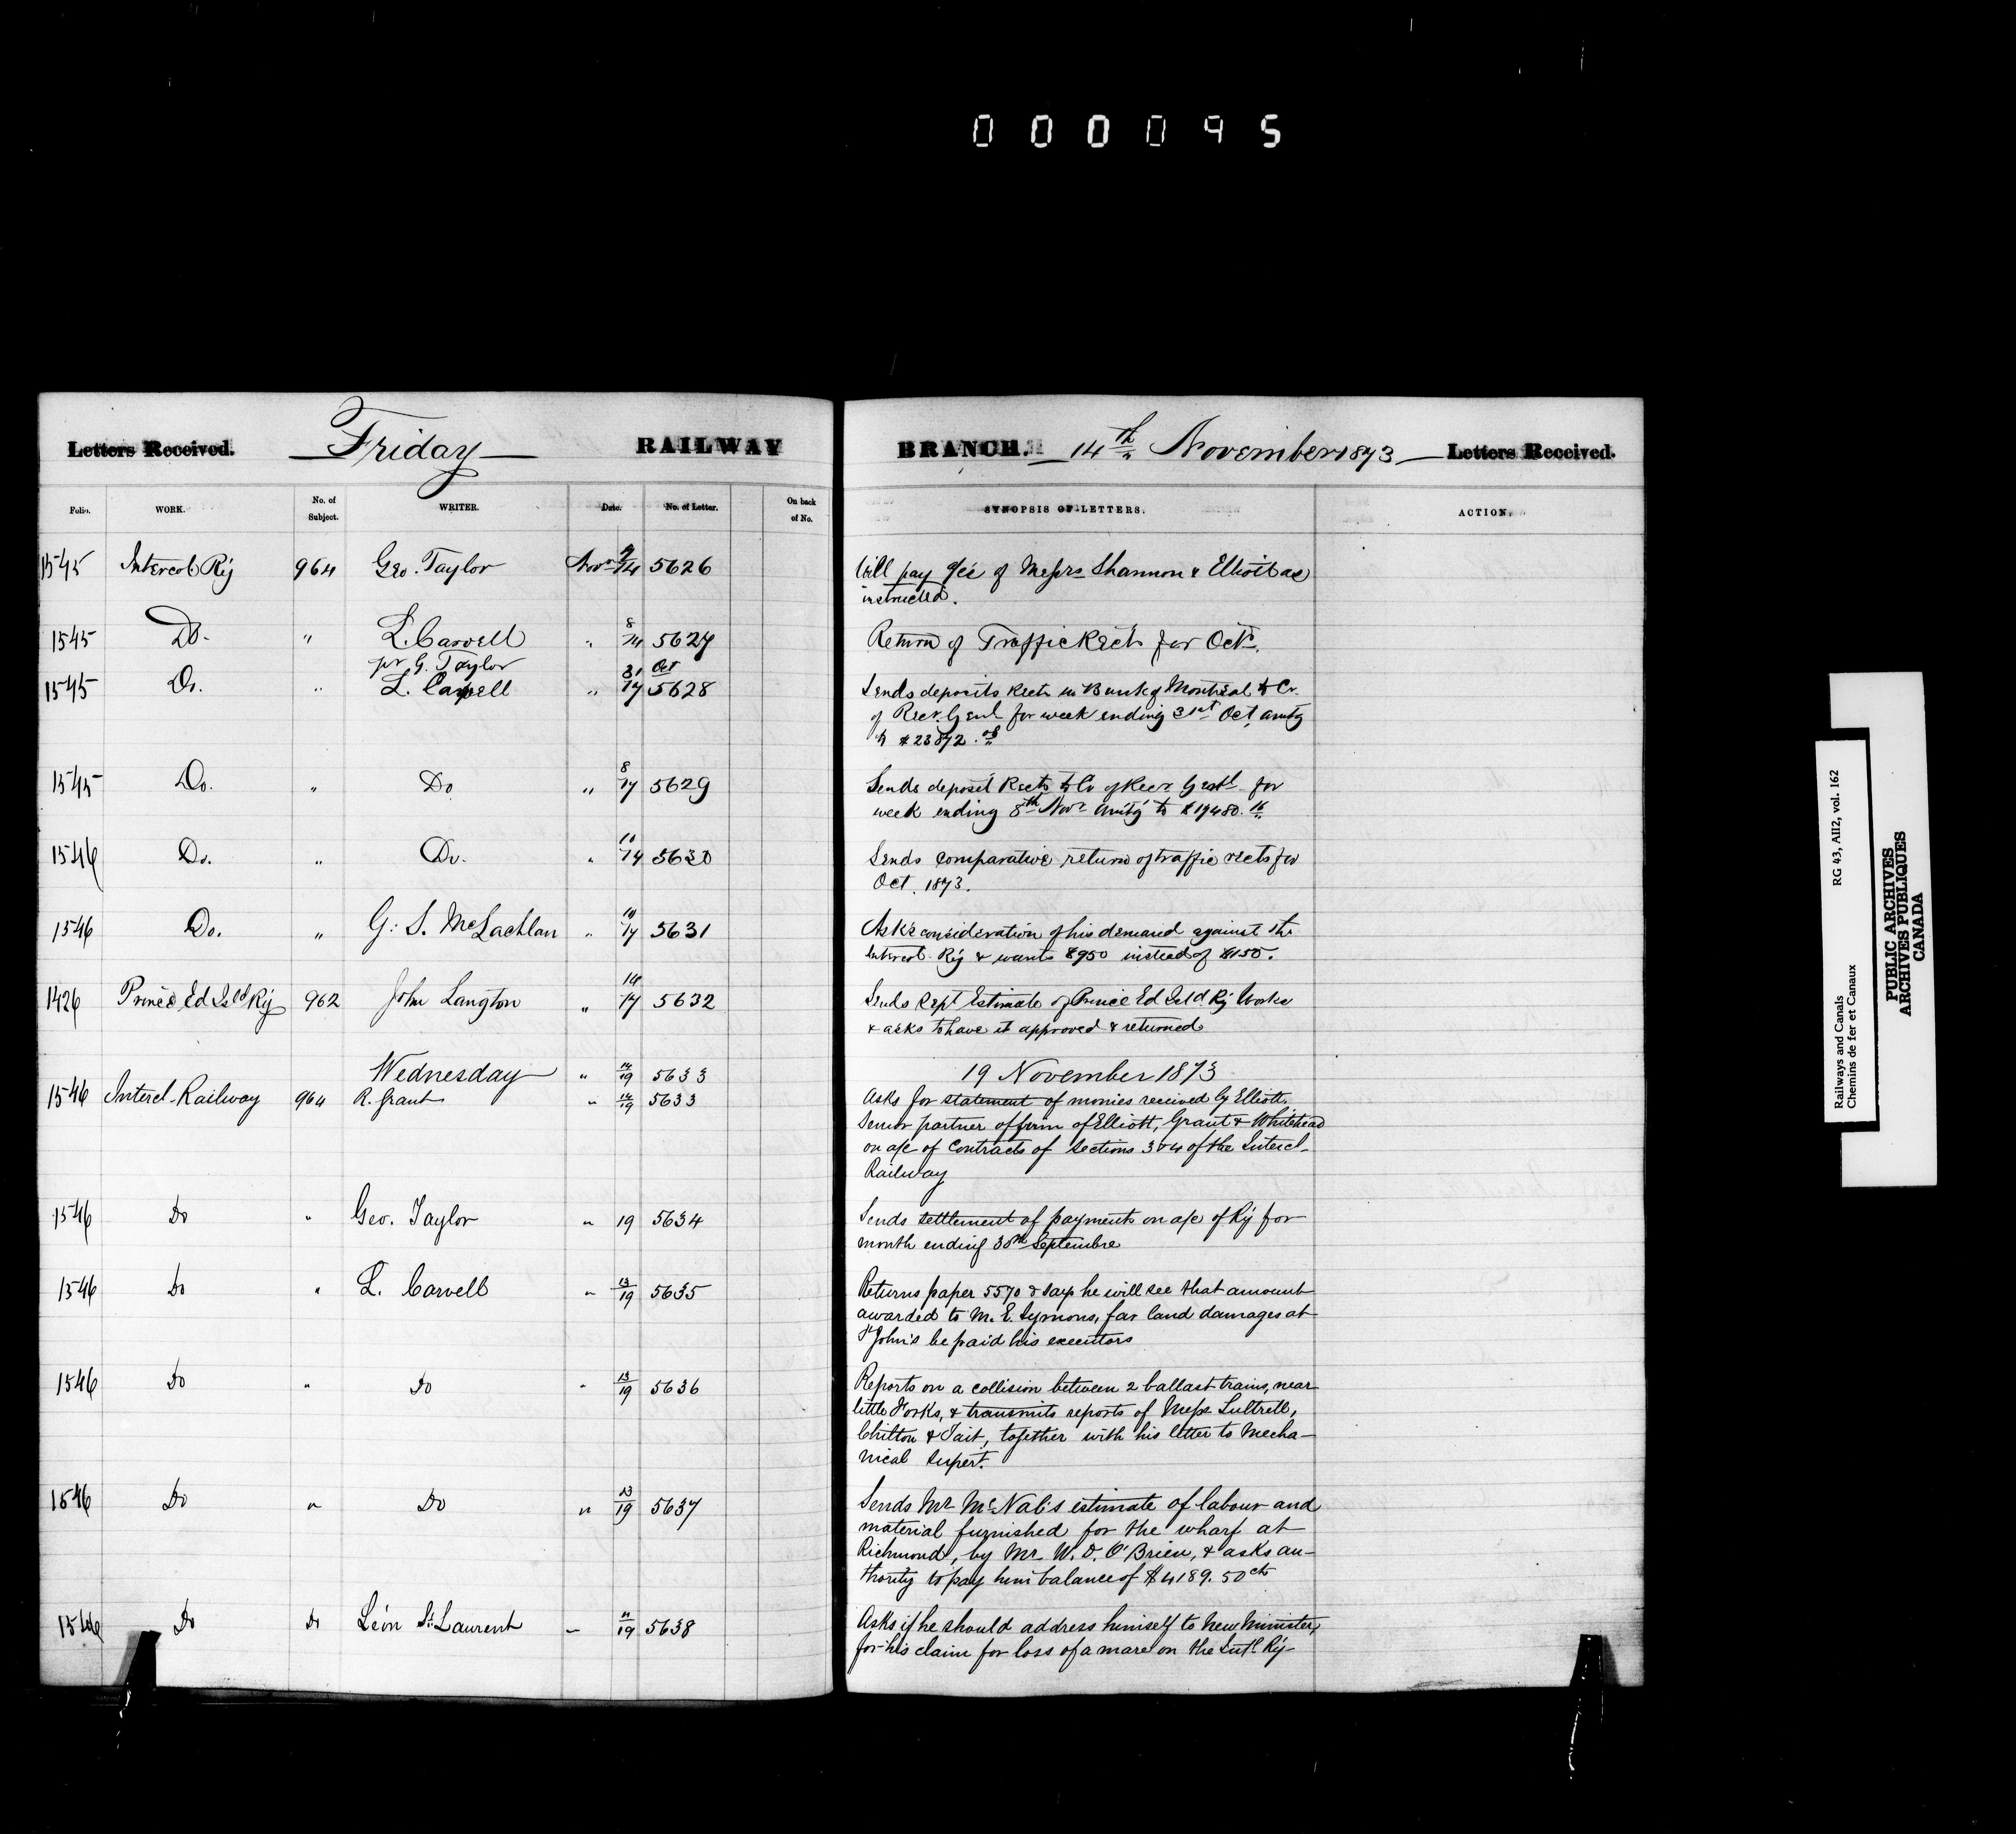 000095
Letters Received. Friday RAILWAY BRANCH. 14th November 1873 Letters Received.
Folio. WORK. No. of Subject. WRITER. Date. No. of Letter. On back of No. SYNOPSIS OF LETTERS. ACTION.
1545 Intercol Ry 964 Geo. Taylor Novr 14 5626 Will pay a/c of Messrs Shannon & Elliott as
instructed.
1545 Do. " L. Carvell " 8/14 5627 Return of Traffic Rects for Octr.
pr G. Taylor
1545 Do. " L. Carvell " 31 Oct/14 5628 Sends deposits Rects in Bank of Montreal to Cr.
of Recr. Genl for week ending 31st Oct. amtg
to $23872.
1545 Do. " Do " 8/14 5629 Sends deposit Rects to Cr of Recr Genl for
week ending 8th Novr amtg to $19480.16
1546 Do. " Do. " 10/14 5630 Sends comparative return of traffic rects for
Oct. 1873.
1546 Do. " G. S. McLachlan " 10/14 5631 Asks consideration of his demand against the
Intercol. Ry & wants $950 instead of $150.
1426 Prince Ed Isld Ry 962 John Langton " 14/14 5632 Sends Sept Estimate of Prince Ed Isld. Ry Works
& asks to have it approved & returned
Wednesday " 14/19 5633 19 November 1873
1546 Intercl. Railway 964 R. Grant " 14/19 5633 Asks for statement of monies received by Elliott,
Senior partner of firm of Elliott, Grant & Whitehead
on a/c of Contracts of Sections 3 & 4 of the Intercl.
Railway
1546 Do " Geo. Taylor " 19 5634 Sends settlement of payments on a/c of Ry for
month ending 30th Septembre
1546 Do " L. Carvell " 13/19 5635 Returns paper 5570 & says he will see that amount
awarded to M. E. Symons, for land damages at
St John's be paid his executors
1546 Do " Do " 13/19 5636 Reports on a collision between 2 ballast trains, near
little Forks, & transmits reports of Messrs Luttrell,
Chilton & Tait, together with his letter to Mecha-
nical Supert.
1546 Do " Do " 13/19 5637 Sends Mr McNab's estimate of labour and
material furnished for the wharf at
Richmond, by Mr W. D. O'Brien, & asks au-
thority to pay him balance of $4189.50 cts
1546 Do Do Léon St Laurent " 11/19 5638 Asks if he should address himself to New Minister,
for his claim for loss of a mare on the Intl Ry
Railways and Canals RG 43, AII2, vol. 162
Chemins de fer et Canaux
PUBLIC ARCHIVES
ARCHIVES PUBLIQUES
CANADA